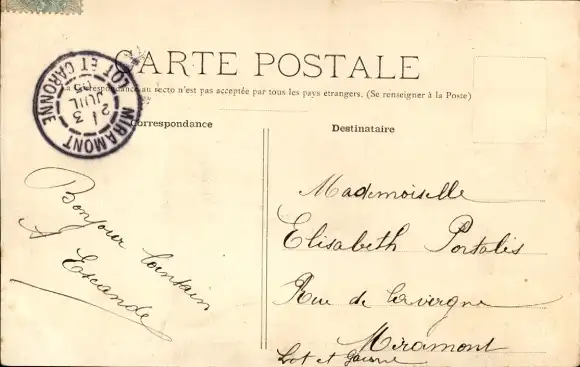 CARTE POSTALE
La Correspondance au recto n'est pas acceptée par tous les pays étrangers. (Se renseigner à la Poste)
Correspondance
Destinataire
MIRAMONT
LOT ET GARONNE
21 3
JUIL
05
Bonjour lointain
Escande
Mademoiselle
Elisabeth Portalés
Rue de Lavergne
Miramont
Lot et Garonne